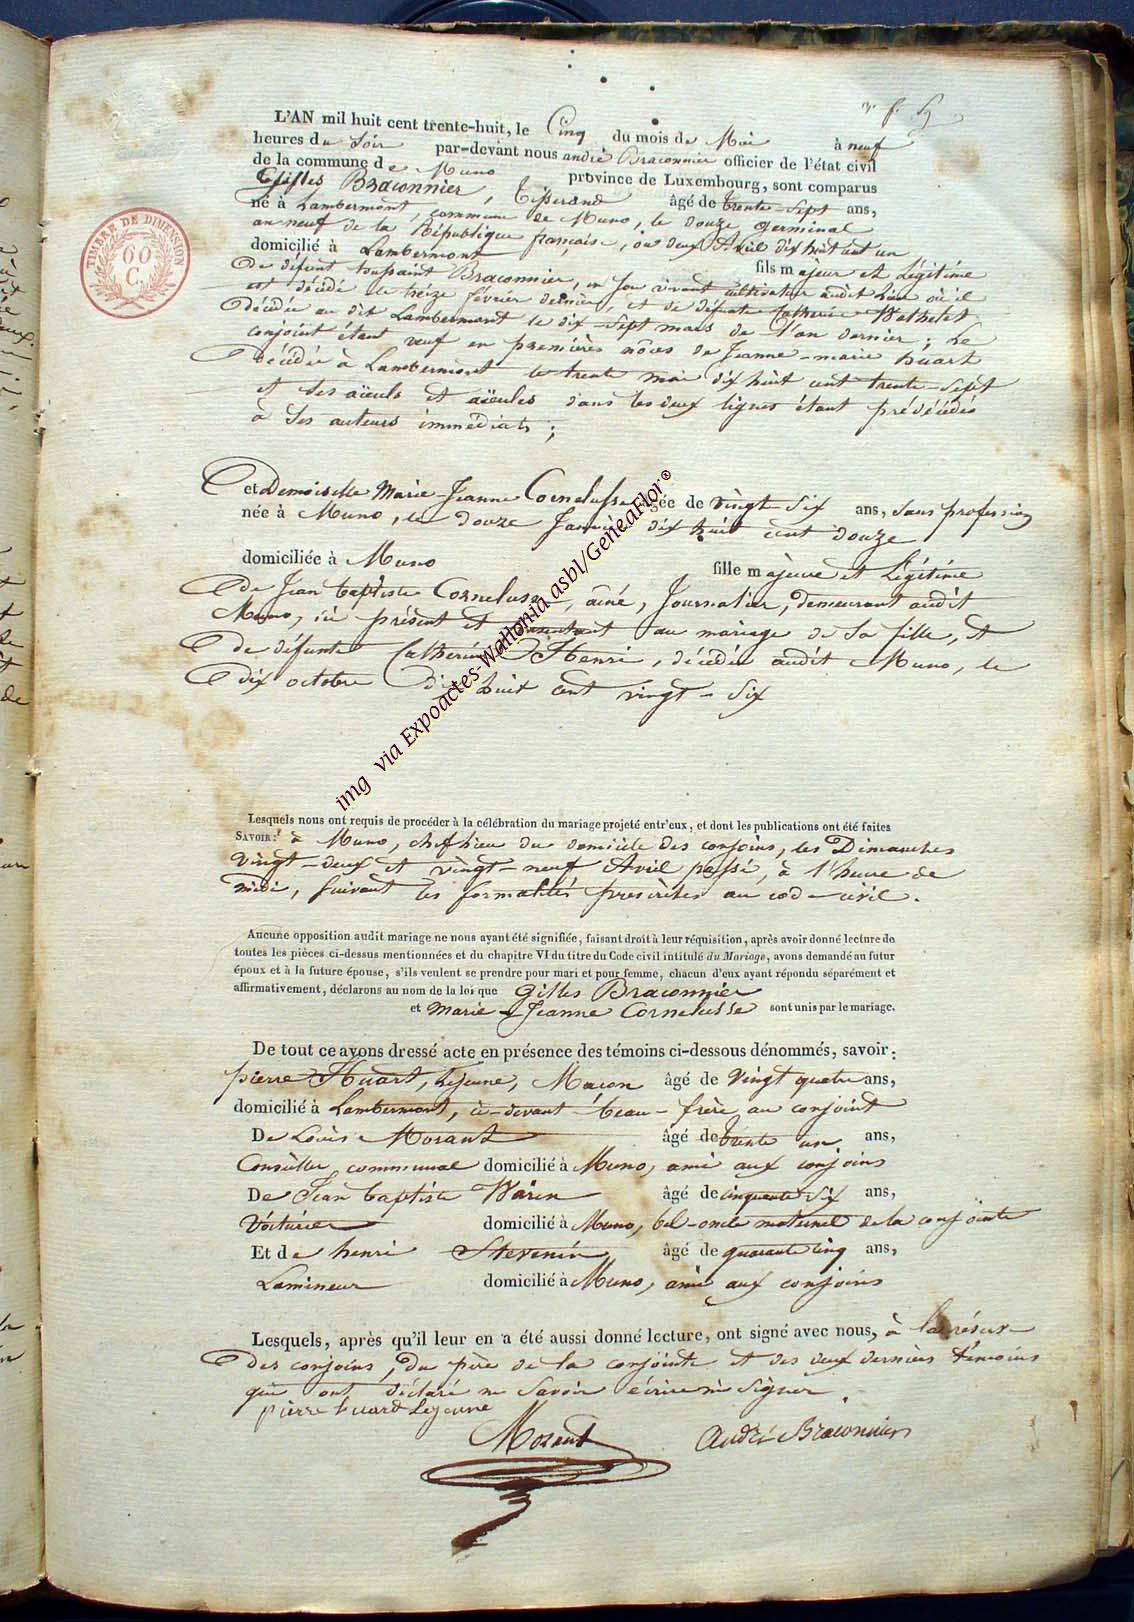 3e f. 5
L'AN mil huit cent trente-huit, le Cinq du mois de Mai à neuf
heures du Soir par-devant nous andré Braconnier officier de l'état civil
de la commune de Muno province de Luxembourg, sont comparus
Gilles Braconnier, Tisserand âgé de trente-sept ans,
né à Lambermont, commune de Muno, le douze germinal
an neuf de la République française, ou deux Avril dix huit cent un
domicilié à Lambermont fils majeur et Légitime
De défunt toussaint Braconnier, en son vivant cultivateur audit Lieu où il
est décédé le treize février dernier, et de défunte Catherine Wathelet
décédée au dit Lambermont le dix-sept mars de l'an dernier; Le
conjoint étant veuf en premières nôces de Jeanne-marie huart
Décédée à Lambermont le trente mai dix huit cent trente-sept
et ses aïeuls et aïeules dans les deux lignes étant prédécédés
à Ses auteurs immédiats;
et Demoiselle Marie-Jeanne Cornelusse âgée de vingt-six ans, sans profession
née à Muno, le douze Janvier dix huit cent douze
domiciliée à Muno fille majeure et Légitime
De Jean baptiste Cornelusse, aîné, Journalier, demeurant audit
Muno, ici présent et consentant au mariage de Sa fille, et
De défunte Catherine Henri, décédée audit Muno, le
Dix octobre Dix huit cent vingt-six
Lesquels nous ont requis de procéder à la célébration du mariage projeté entr'eux, et dont les publications ont été faites
SAVOIR: à Muno, chef lieu du domicile des conjoins, les Dimanches
vingt-deux et vingt-neuf Avril passé, à l'heure de
midi, suivant les formalités prescrites au code civil.
Aucune opposition audit mariage ne nous ayant été signifiée, faisant droit à leur réquisition, après avoir donné lecture de
toutes les pièces ci-dessus mentionnées et du chapitre VI du titre du Code civil intitulé du Mariage, avons demandé au futur
époux et à la future épouse, s'ils veulent se prendre pour mari et pour femme, chacun d'eux ayant répondu séparément et
affirmativement, déclarons au nom de la loi que Gilles Braconnier
et Marie-Jeanne Cornelusse sont unis par le mariage.
De tout ce avons dressé acte en présence des témoins ci-dessous dénommés, savoir:
pierre Huart, Lejeune, Maçon âgé de Vingt quatre ans,
domicilié à Lambermont, ci-devant beau-frère au conjoint
De Louis Morant âgé de trente un ans,
Conseiller communal domicilié à Muno, ami aux conjoins
De Jean baptiste Warin âgé de cinquante six ans,
Voiturier domicilié à Muno, bel-oncle maternel de la conjointe
Et de henri Stevenin âgé de quarante cinq ans,
Lamineur domicilié à Muno, ami aux conjoins
Lesquels, après qu'il leur en a été aussi donné lecture, ont signé avec nous, à la réserve
Des conjoins, Du père de la conjointe et des deux derniers témoins
qui ont déclaré ne Savoir écrire ni Signer.
pierre huard Lejeune
Morant André Braconnier
TIMBRE DE DIMENSION
60
C.
img via Expoactes-Wallonia asbl/GeneaFlor®